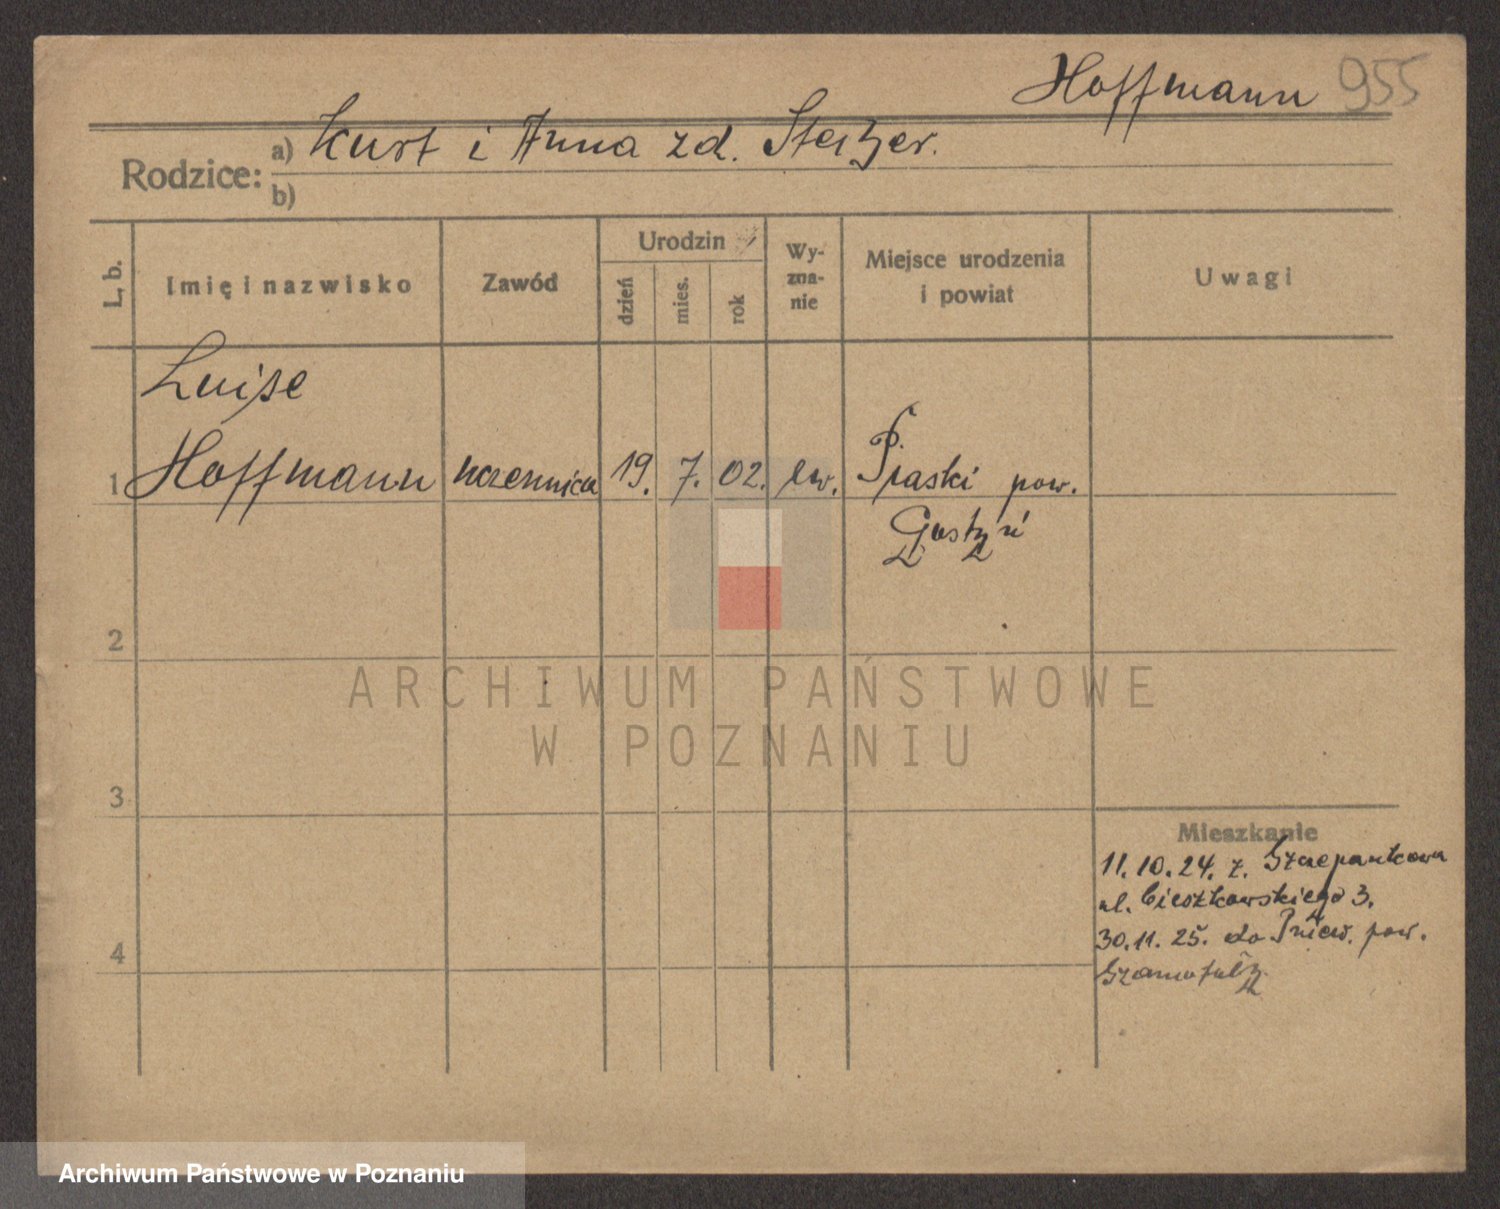 Hoffmann 955
Rodzice: a) Kurt i Anna zd.
b)
L. b.
Imię i nazwisko
Zawód
Urodzin
dzień
mies.
rok
Wy-
zna-
nie
Miejsce urodzenia
i powiat
Uwagi
Luise
1 Hoffmann uczennica 19. 7. 02. ew. Piaski pow.
Gostyń
2
ARCHIWUM PAŃSTWOWE
W POZNANIU
3
Mieszkanie
11.10.24. z. Szczepankowa
ul. Cieszkowskiego 3.
30.11.25. do Pniew. pow.
4
Szamotuły
Archiwum Państwowe w Poznaniu